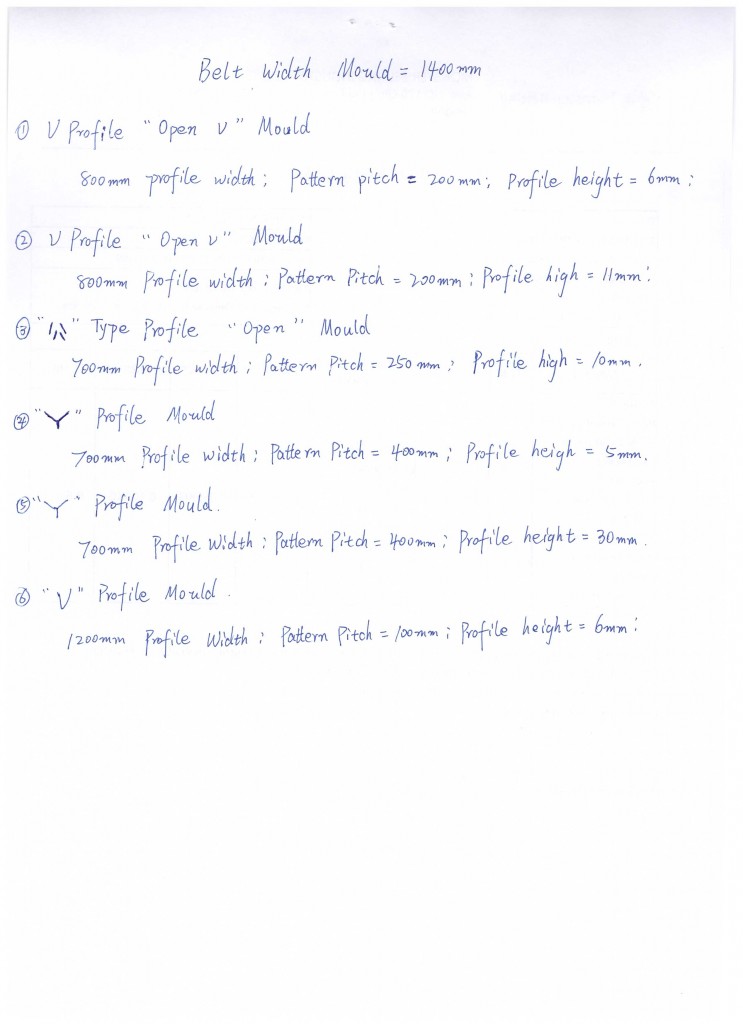 Belt Width Mould = 1400mm
① V Profile "Open V" Mould
800mm profile width; Pattern pitch = 200mm; Profile height = 6mm;
② V Profile "Open V" Mould
800mm Profile width; Pattern Pitch = 200mm; Profile high = 11mm;
③ " " Type Profile "Open" Mould
700mm Profile width; Pattern Pitch = 250mm; Profile high = 10mm.
④ "Y" Profile Mould
700mm Profile width; Pattern Pitch = 400mm; Profile heigh = 5mm.
⑤ "Y" Profile Mould.
700mm Profile Width; Pattern Pitch = 400mm; Profile height = 30mm.
⑥ "V" Profile Mould.
1200mm Profile Width; Pattern Pitch = 100mm; Profile height = 6mm;